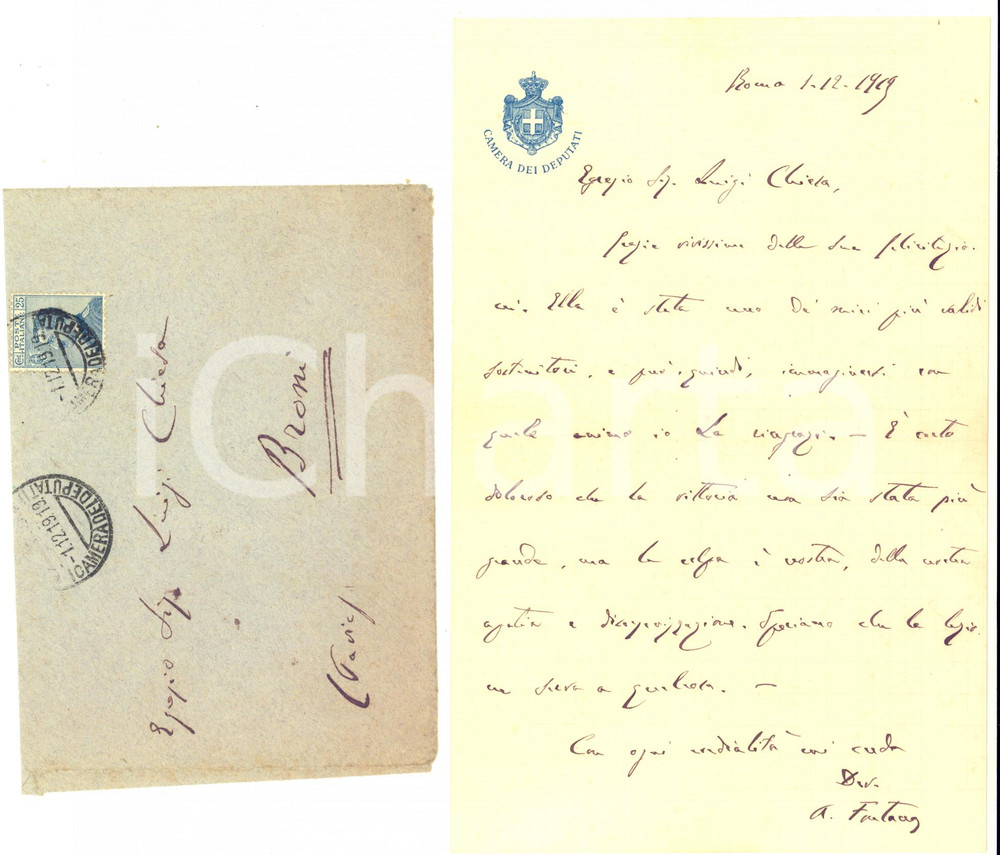 Roma 1-12-1919
CAMERA DEI DEPUTATI
Egregio Sig. Luigi Chiesa,
grazie vivissime delle sue felicitazio-
ni. Ella è stata uno de' miei più validi
sostenitori, e può, quindi, immaginarsi con
quale animo io La ringrazi. — È certo
doloroso che la vittoria non sia stata più
grande, ma la colpa è nostra, della nostra
apatia e disorganizzazione. Speriamo che la lezio-
ne serva a qualcosa. —
Con ogni cordialità mi creda
Dev.
A. Fontana
POSTE ITALIANE
CENT 25
CAMERA DEI DEPUTATI
-1.12.19.19
CAMERA DEI DEPUTATI
-1.12.19.19
Egregio Sig. Luigi Chiesa
Broni
(Pavia)
iCharta